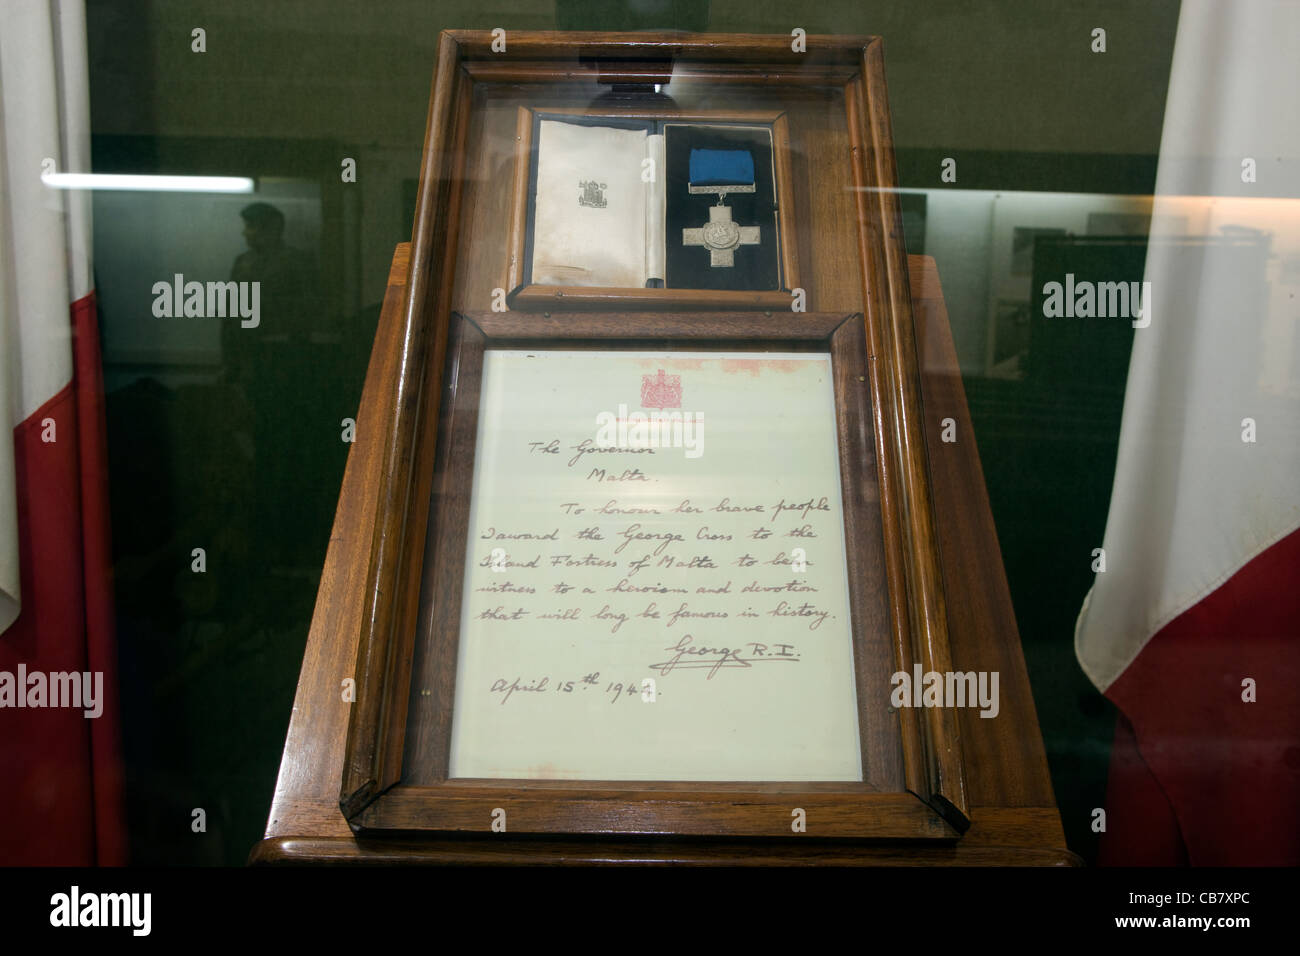 The Governor
Malta.
To honour her brave people
I award the George Cross to the
Island Fortress of Malta to bear
witness to a heroism and devotion
that will long be famous in history.
George R.I.
April 15th 194
a
alamy
a
a
alamy
a
alamy
a
alamy
alamy
Image ID: CB7XPC
www.alamy.com